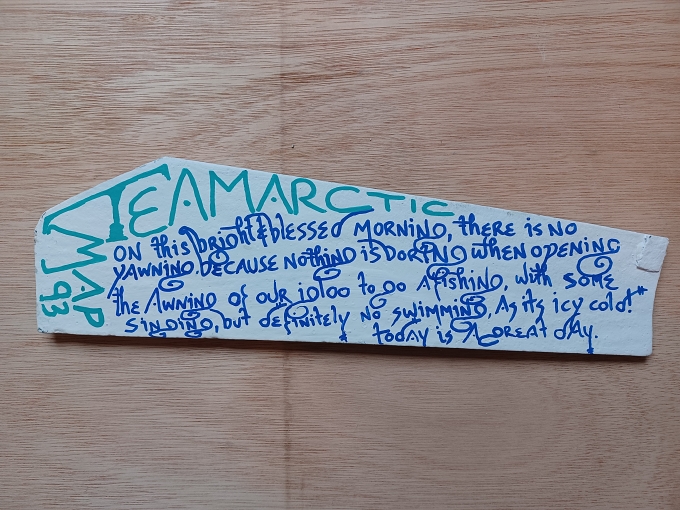 TEAMARCTIC
MAP
J93
ON this bright & blessed MORNING, there is NO
YAWNING because nothing is BORING when opening
the AWNING of our igloo to go Afishing, with some
singing, but definitely no swimming, As its icy cold!*
* today is A Great day. *